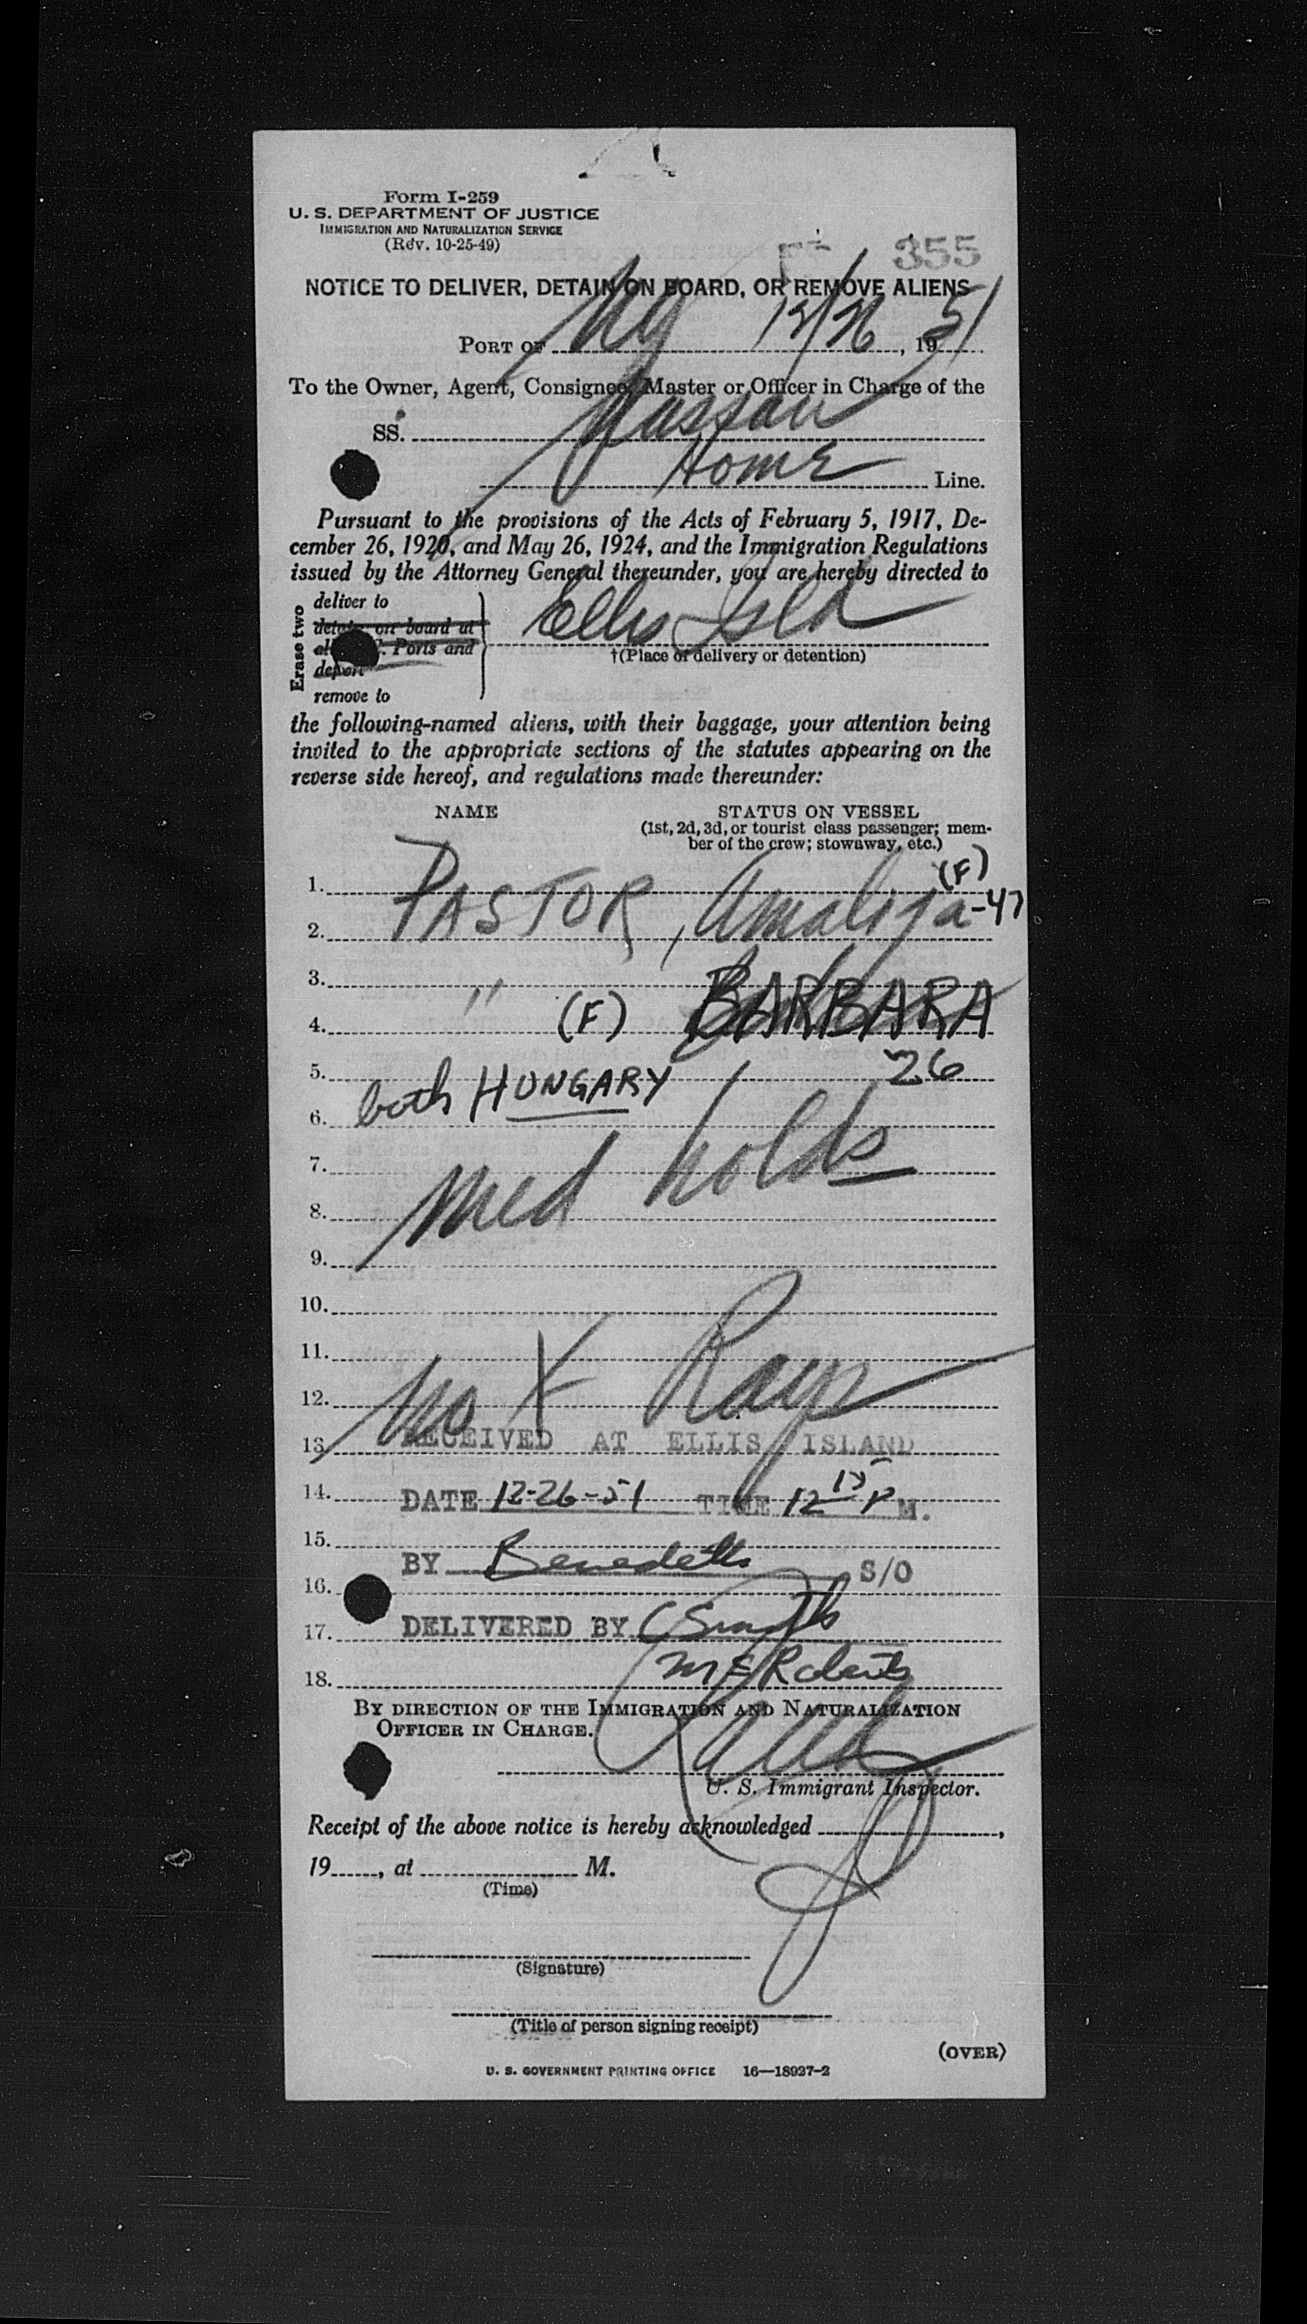 Form I-259
U. S. DEPARTMENT OF JUSTICE
IMMIGRATION AND NATURALIZATION SERVICE
(Rev. 10-25-49)
355
NOTICE TO DELIVER, DETAIN ON BOARD, OR REMOVE ALIENS
PORT OF NY 12/26, 1951
To the Owner, Agent, Consignee, Master or Officer in Charge of the
SS. Nassau
Home Line.
Pursuant to the provisions of the Acts of February 5, 1917, De-
cember 26, 1920, and May 26, 1924, and the Immigration Regulations
issued by the Attorney General thereunder, you are hereby directed to
Erase two
deliver to
detain on board at
Ports and
deport
remove to
Ellis Isld
†(Place of delivery or detention)
the following-named aliens, with their baggage, your attention being
invited to the appropriate sections of the statutes appearing on the
reverse side hereof, and regulations made thereunder:
NAME STATUS ON VESSEL
(1st, 2d, 3d, or tourist class passenger; mem-
ber of the crew; stowaway, etc.)
1. (F)
2. PASTOR, Amalija-47
3.
4. " (F) BARBARA
5. 26
6. both HUNGARY
7. Med holds
8.
9.
10.
11.
12. No X Rays
13. RECEIVED AT ELLIS ISLAND
14. DATE 12-26-51 TIME 12 15 P M.
15.
BY Benedetto S/O
16.
17. DELIVERED BY C Smith
18. M E Roberts
BY DIRECTION OF THE IMMIGRATION AND NATURALIZATION
OFFICER IN CHARGE.
U. S. Immigrant Inspector.
Receipt of the above notice is hereby acknowledged
19, at M.
(Time)
(Signature)
(Title of person signing receipt)
(OVER)
U. S. GOVERNMENT PRINTING OFFICE 16—18927-2